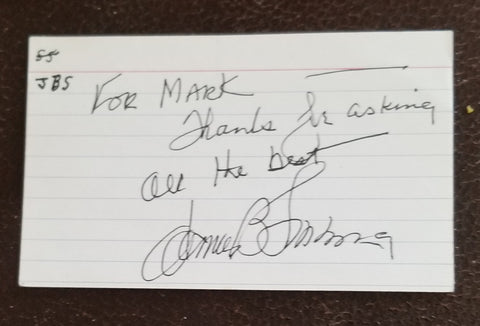 55
JBS
FOR MARK
Thanks for asking
all the best
James B.